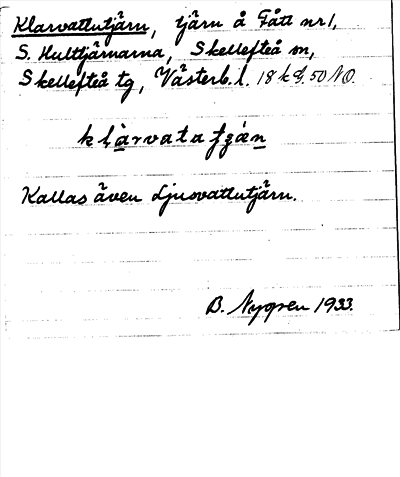 Klarvattutjärn, tjärn å Fått nr 1,
S. Hulttjärnarna, Skellefteå sn,
Skellefteå tg, Västerb. l. 18 k d. 50 NO.
klarvatafzän
Kallas även Ljusvattutjärn.
B. Nygren 1933.